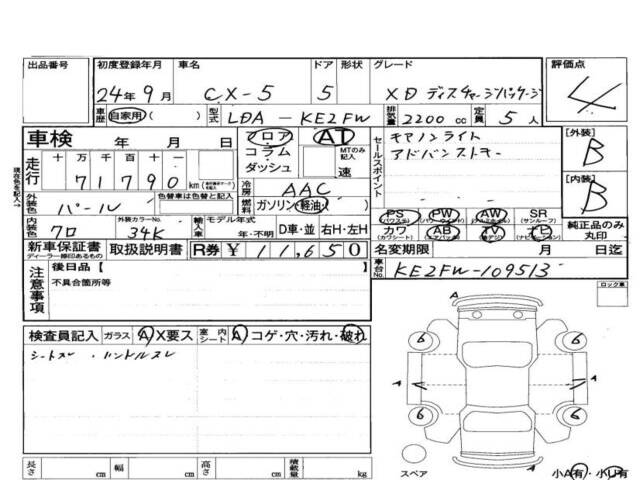 出品番号 初度登録年月 車名 ドア 形状 グレード 評価点
24年 9月 CX-5 5 XD ディスチャージパッケージ 4
車歴 自家用 ( ) 型式 LDA - KE2FW 排気量 2200 cc 定員 5 人
車検 年 月 日 フロア AT セールスポイント キセノンライト [外装]
コラム MTのみ記入 アドバンストキー B
走行 十万 万 千 百 十 7 1 7 9 0 km ダッシュ 速
[内装]
現在色を記入→ 冷房 AAC B
外装色 パール 色替車は色替と記入 燃料 ガソリン 軽油 PS (パワステ) PW (パワーウィンド) AW SR (サンルーフ)
内装色 クロ 外装カラーNo. 34K 輸入車 モデル年式 年・不明 D車・並 右H・左H カワ (カワシート) AB TV ナビ (ナビゲーション) 純正品のみ丸印
新車保証書 ディーラー捺印あるもの 取扱説明書 R券 ¥ 11,650 名変期限 月 日迄
注意事項 後日品【 】 車台No. KE2FW-109513
不具合箇所等 ロック車
検査員記入 ガラス A X要ス 室内シート A コゲ・穴・汚れ・破れ A
シートスレ ・ ハンドルスレ 6 6
A A
6 6
長さ cm 幅 cm 高さ cm 積載量 kg スペア A 小A有・小U有